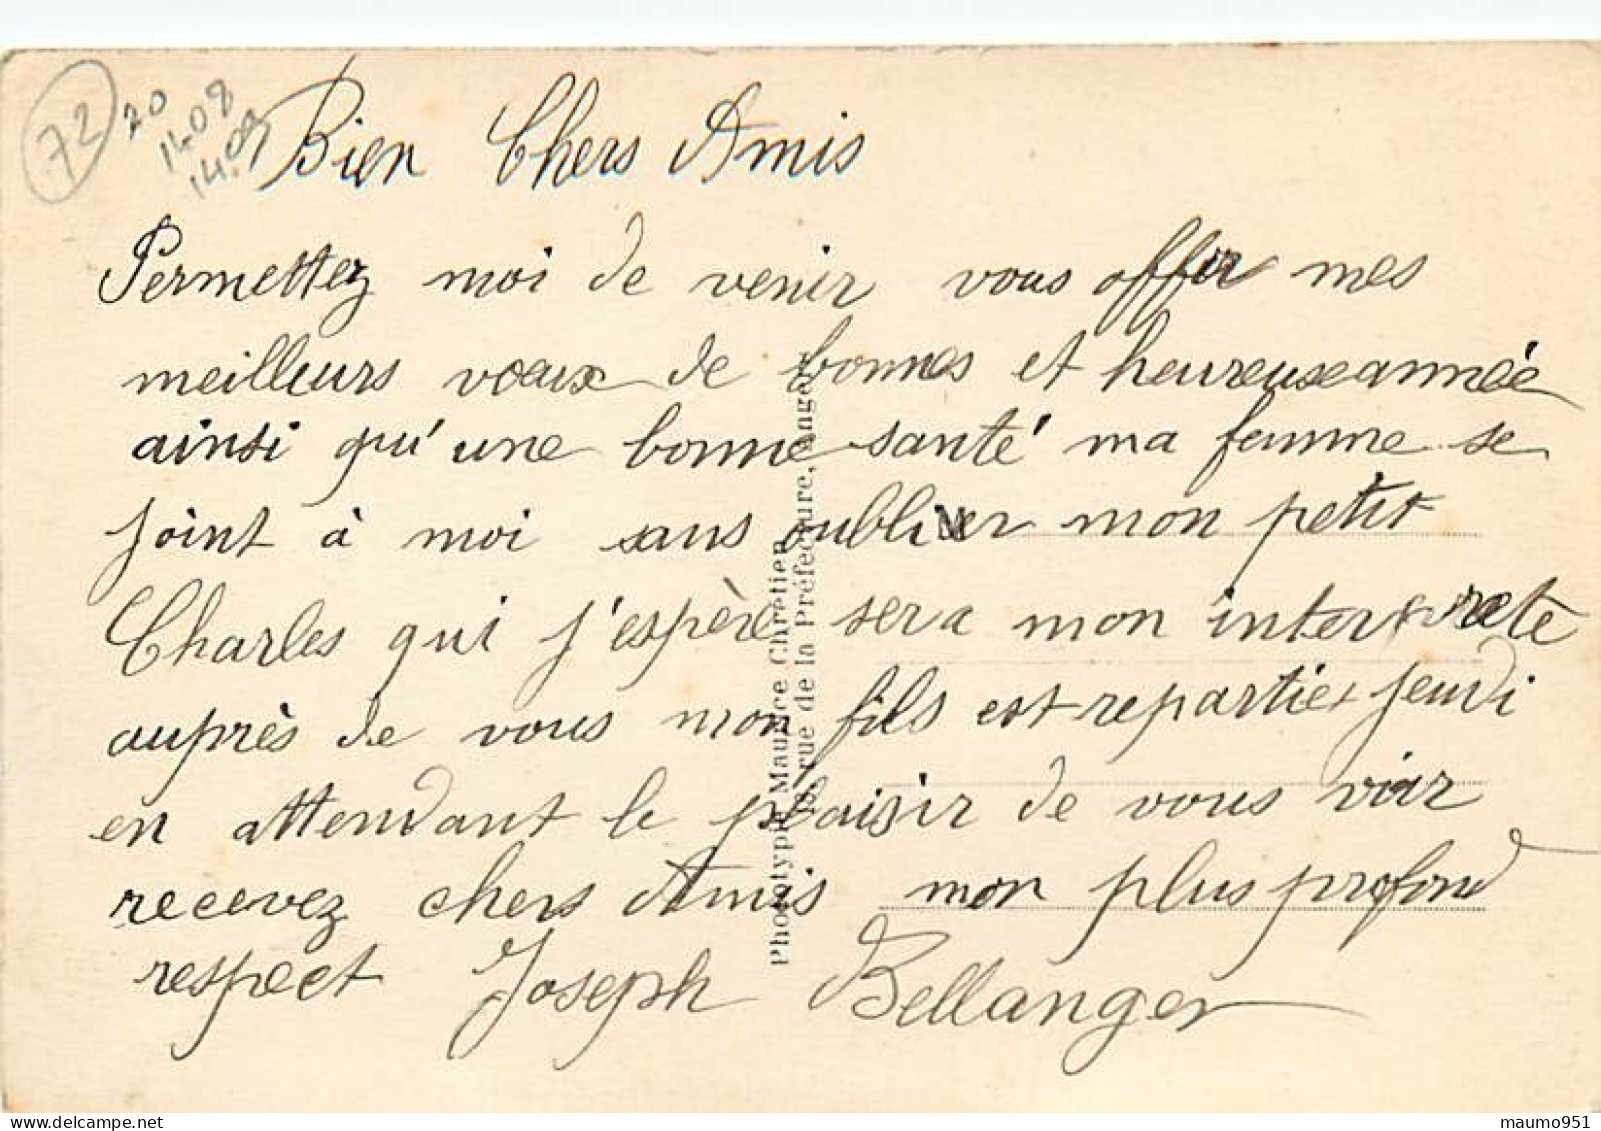 72
20
14.08
14.09
Bien Chers Amis
Permettez moi de venir vous offrir mes
meilleurs voeux de bonnes et heureuse année
ainsi qu'une bonne santé ma femme se
joint à moi sans oublier mon petit
Charles qui j'espère sera mon interprete
auprès de vous mon fils est repartie jeudi
en attendant le plaisir de vous voir
recevez chers Amis mon plus profond
respect Joseph Bellanger
Phototypie Maurice Chrétien
rue de la Préfecture, Angers
maumo951